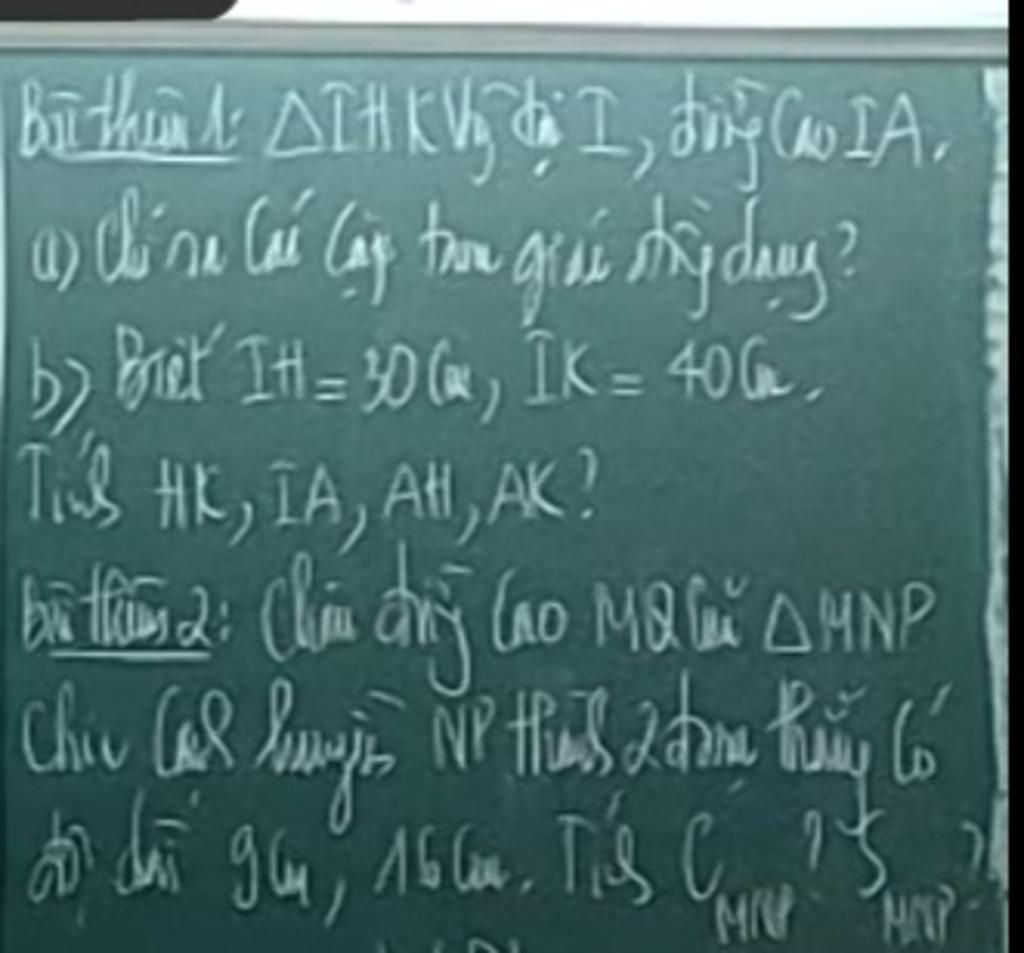 Bài thêm 1: ΔIHK vg tại I, đường cao IA.
a) Chỉ ra các cặp tam giác đồng dạng?
b) Biết IH = 30cm, IK = 40cm.
Tính HK, IA, AH, AK?
Bài thêm 2: Chiều đường cao MQ của ΔMNP
chia cạnh huyền NP thành 2 đoạn thẳng có
độ dài 9cm, 16cm. Tính C MNP? S MNP?